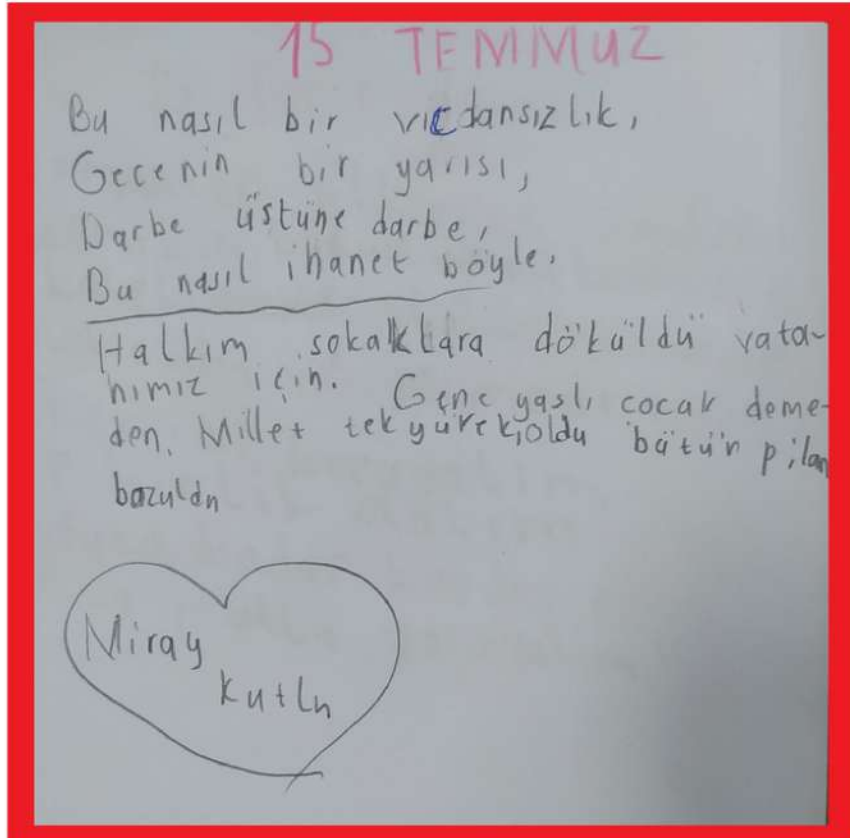 15 TEMMUZ
Bu nasıl bir vicdansızlık,
Gecenin bir yarısı,
Darbe üstüne darbe,
Bu nasıl ihanet böyle.
Halkım sokaklara döküldü vata-
nımız için. Genç yaşlı cocuk deme-
den. Millet tek yürek oldu bütün pilan
bozuldu
Miray
Kutlu